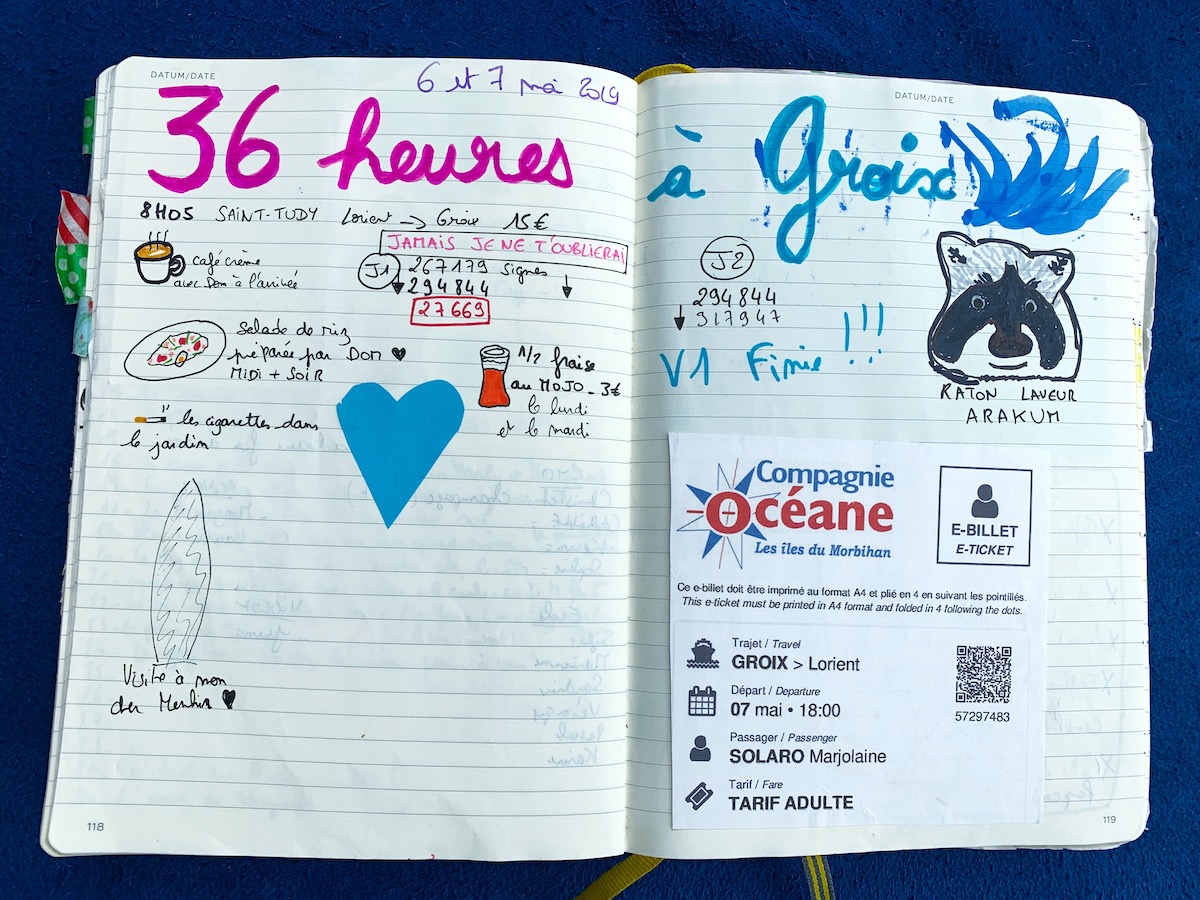 DATUM/DATE
6 et 7 mai 2019
36 heures
8H05 SAINT-TUDY Lorient → Groix 15€
JAMAIS JE NE T'OUBLIERAI
café crème
avec Dom à l'arrivée
J1 267179 signes
294844
27669
Salade de riz
préparée par DOM
MIDI + SOIR
1/2 fraise
au MOJO_3€
le lundi
et le mardi
les cigarettes dans
le jardin
Visite à mon
cher Menhir
118
DATUM/DATE
à Groix
J2
294844
317947
V1 Finie !!!
RATON LAVEUR
ARAKUM
Compagnie
Océane
Les îles du Morbihan
E-BILLET
E-TICKET
Ce e-billet doit être imprimé au format A4 et plié en 4 en suivant les pointillés.
This e-ticket must be printed in A4 format and folded in 4 following the dots.
Trajet / Travel
GROIX > Lorient
Départ / Departure
07 mai • 18:00
57297483
Passager / Passenger
SOLARO Marjolaine
Tarif / Fare
TARIF ADULTE
119